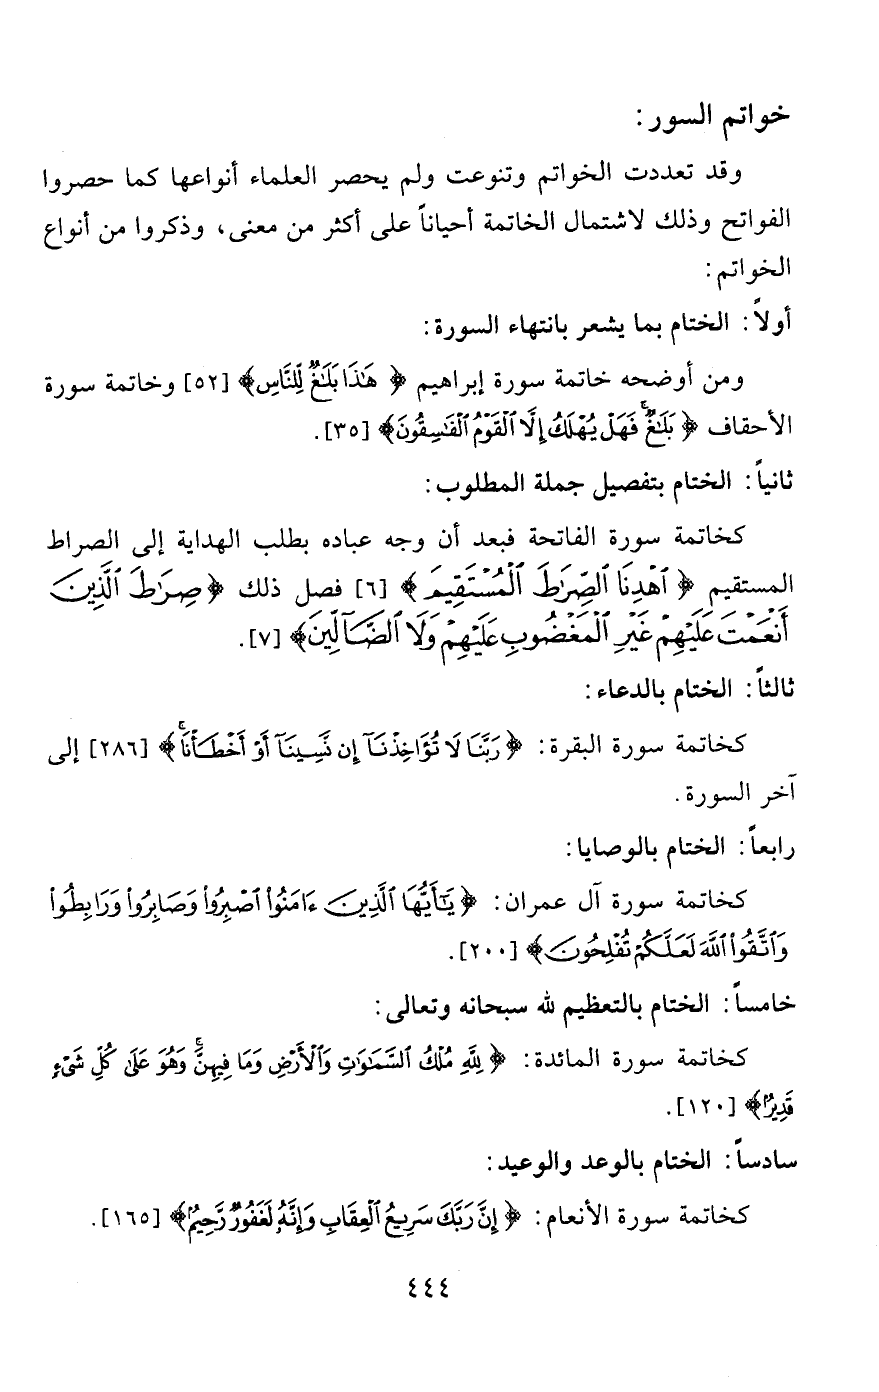 خواتم السور :
وقد تعددت الخواتم وتنوعت ولم يحصر العلماء أنواعها كما حصروا
الفواتح وذلك لاشتمال الخاتمة أحياناً على أكثر من معنى، وذكروا من أنواع
الخواتم:
أولاً: الختام بما يشعر بانتهاء السورة:
ومن أوضحه خاتمة سورة إبراهيم ﴿ هَٰذَا بَلَٰغٌ لِّلنَّاسِ﴾ [٥٢] وخاتمة سورة
الأحقاف ﴿ بَلَٰغٌ ۚ فَهَلْ يُهْلَكُ إِلَّا ٱلْقَوْمُ ٱلْفَٰسِقُونَ﴾ [٣٥].
ثانياً: الختام بتفصيل جملة المطلوب:
كخاتمة سورة الفاتحة فبعد أن وجه عباده بطلب الهداية إلى الصراط
المستقيم ﴿ ٱهْدِنَا ٱلصِّرَٰطَ ٱلْمُسْتَقِيمَ ﴾ [٦] فصل ذلك ﴿صِرَٰطَ ٱلَّذِينَ
أَنْعَمْتَ عَلَيْهِمْ غَيْرِ ٱلْمَغْضُوبِ عَلَيْهِمْ وَلَا ٱلضَّآلِّينَ﴾ [٧].
ثالثاً: الختام بالدعاء:
كخاتمة سورة البقرة: ﴿ رَبَّنَا لَا تُؤَاخِذْنَآ إِن نَّسِينَآ أَوْ أَخْطَأْنَا ۚ ﴾ [٢٨٦] إلى
آخر السورة.
رابعاً: الختام بالوصايا:
كخاتمة سورة آل عمران: ﴿ يَٰٓأَيُّهَا ٱلَّذِينَ ءَامَنُوا۟ ٱصْبِرُوا۟ وَصَابِرُوا۟ وَرَابِطُوا۟
وَٱتَّقُوا۟ ٱللَّهَ لَعَلَّكُمْ تُفْلِحُونَ﴾ [٢٠٠].
خامساً: الختام بالتعظيم لله سبحانه وتعالى:
كخاتمة سورة المائدة: ﴿ لِلَّهِ مُلْكُ ٱلسَّمَٰوَٰتِ وَٱلْأَرْضِ وَمَا فِيهِنَّ ۚ وَهُوَ عَلَىٰ كُلِّ شَىْءٍ
قَدِيرٌۢ﴾ [١٢٠].
سادساً: الختام بالوعد والوعيد:
كخاتمة سورة الأنعام: ﴿ إِنَّ رَبَّكَ سَرِيعُ ٱلْعِقَابِ وَإِنَّهُۥ لَغَفُورٌ رَّحِيمٌۢ﴾ [١٦٥].
٤٤٤